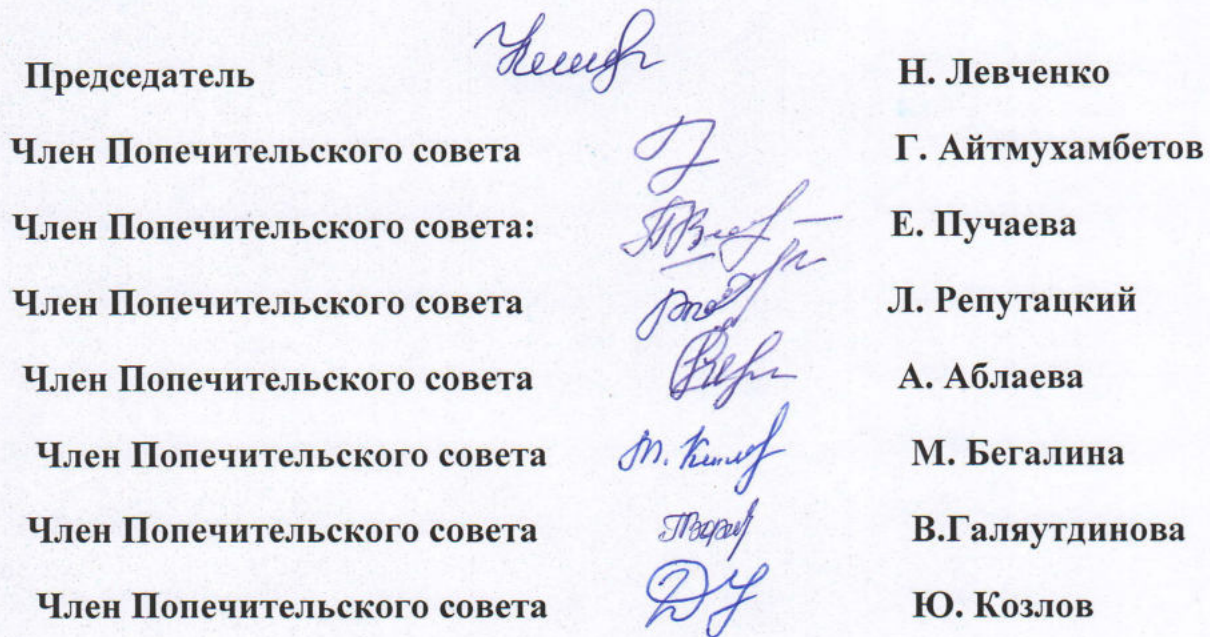 Председатель Н. Левченко
Член Попечительского совета Г. Айтмухамбетов
Член Попечительского совета: Е. Пучаева
Член Попечительского совета Л. Репутацкий
Член Попечительского совета А. Аблаева
Член Попечительского совета М. Бегалина
Член Попечительского совета В.Галяутдинова
Член Попечительского совета Ю. Козлов